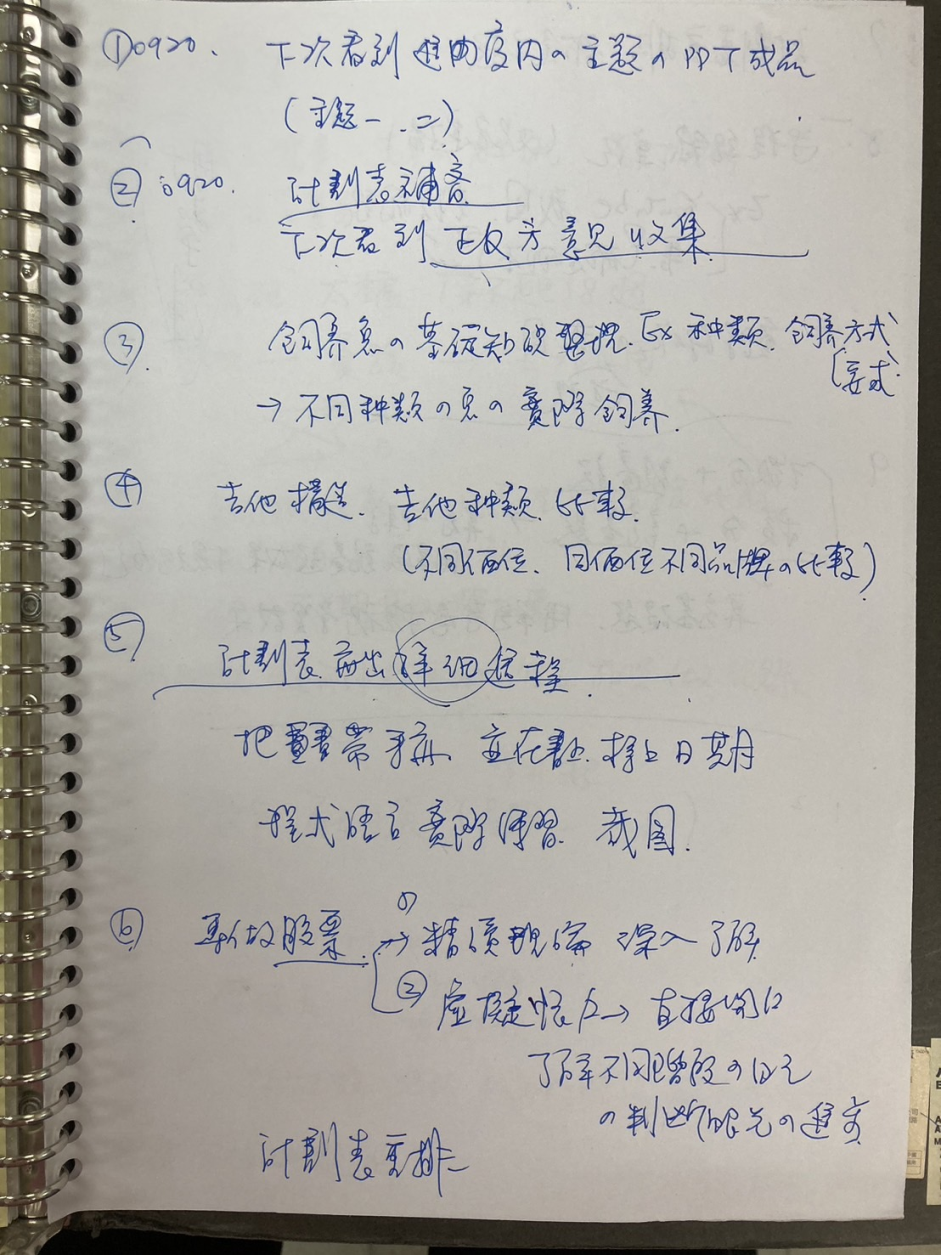 ① 0920. 下次看到進度內の主題の PPT成品
(主題一.二)
② 0920. 計劃表補齊
下次看到正反方意見收集
③ 飼養魚の基礎知識整理. Ex 種類. 飼養方式
→ 不同种類の魚の實際飼養.
④ 吉他構造. 吉他种類. 比較.
(不同価位、同価位不同品牌の比較)
⑤ 計劃表 詳細進程
把書帶來, 並在書上 標上日期
程式語言實際練習. 截圖.
⑥ 股票 ① → 理論 深入了解.
② 虛擬帳戶→ 直接開口
了解不同階段の自己
の判斷眼光の進步
計劃表重排